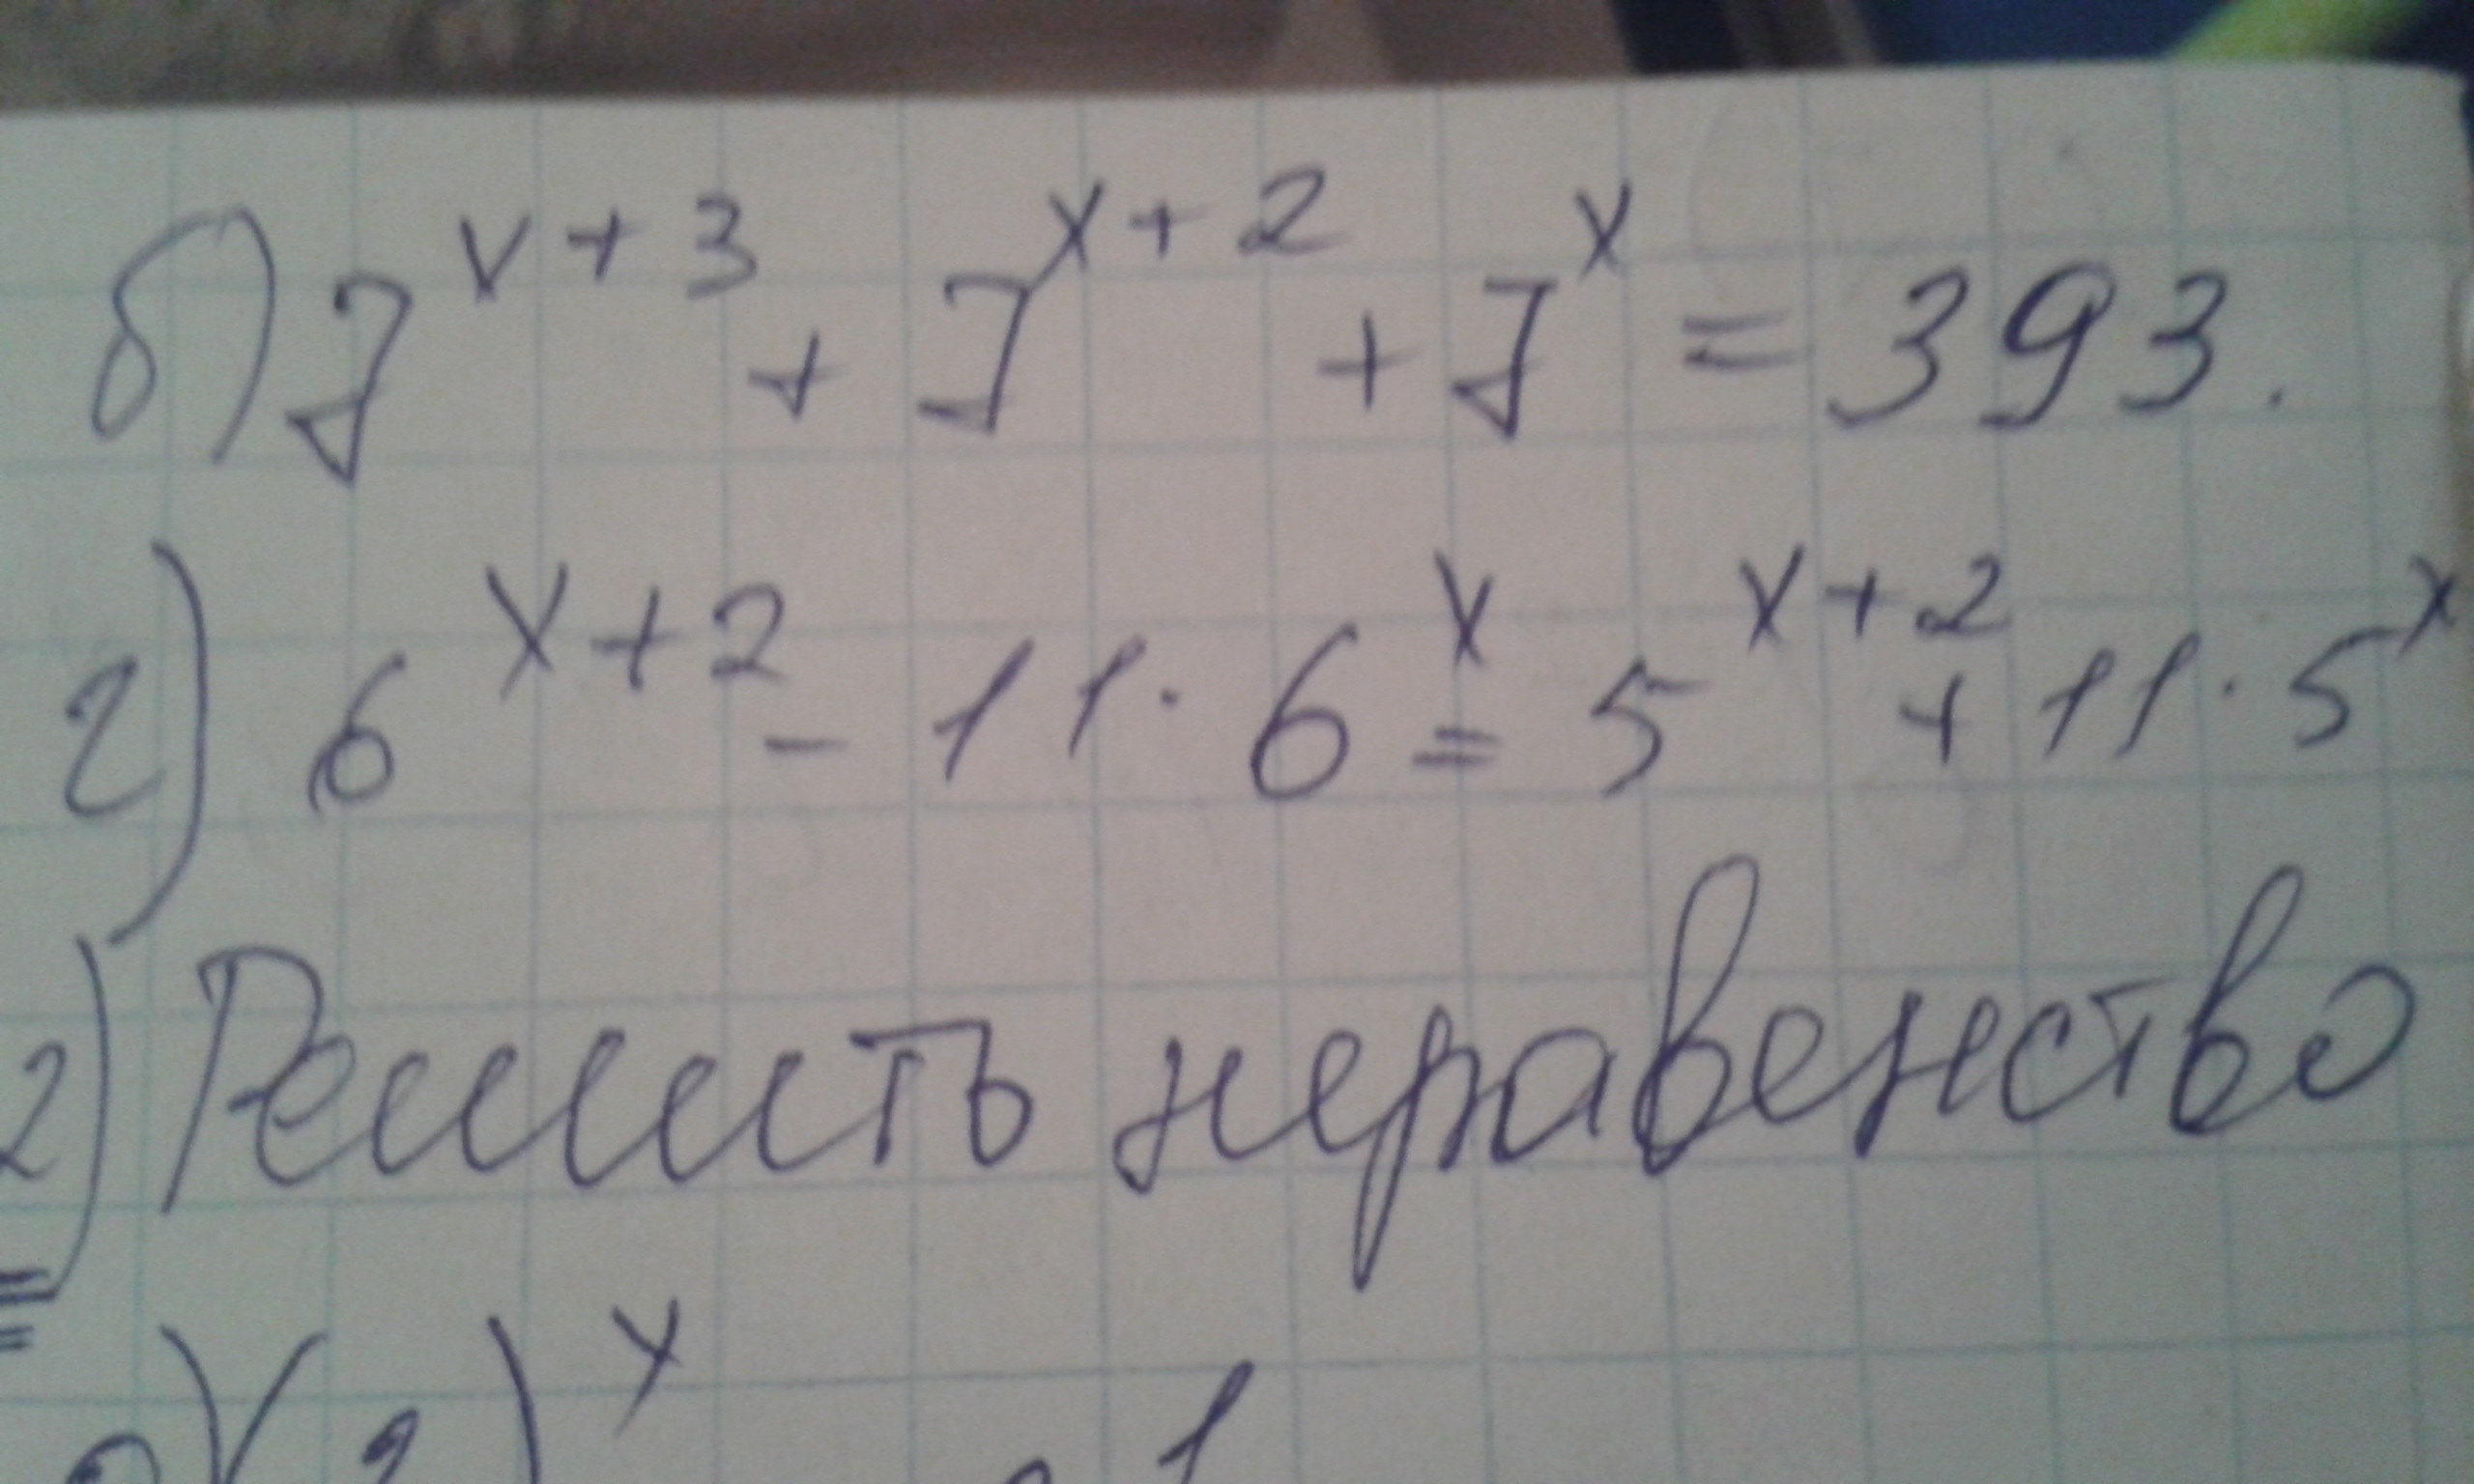 б) 7^(x+3) + 7^(x+2) + 7^x = 393.
г) 6^(x+2) - 11 · 6^x = 5^(x+2) + 11 · 5^x
2) Решить неравенство